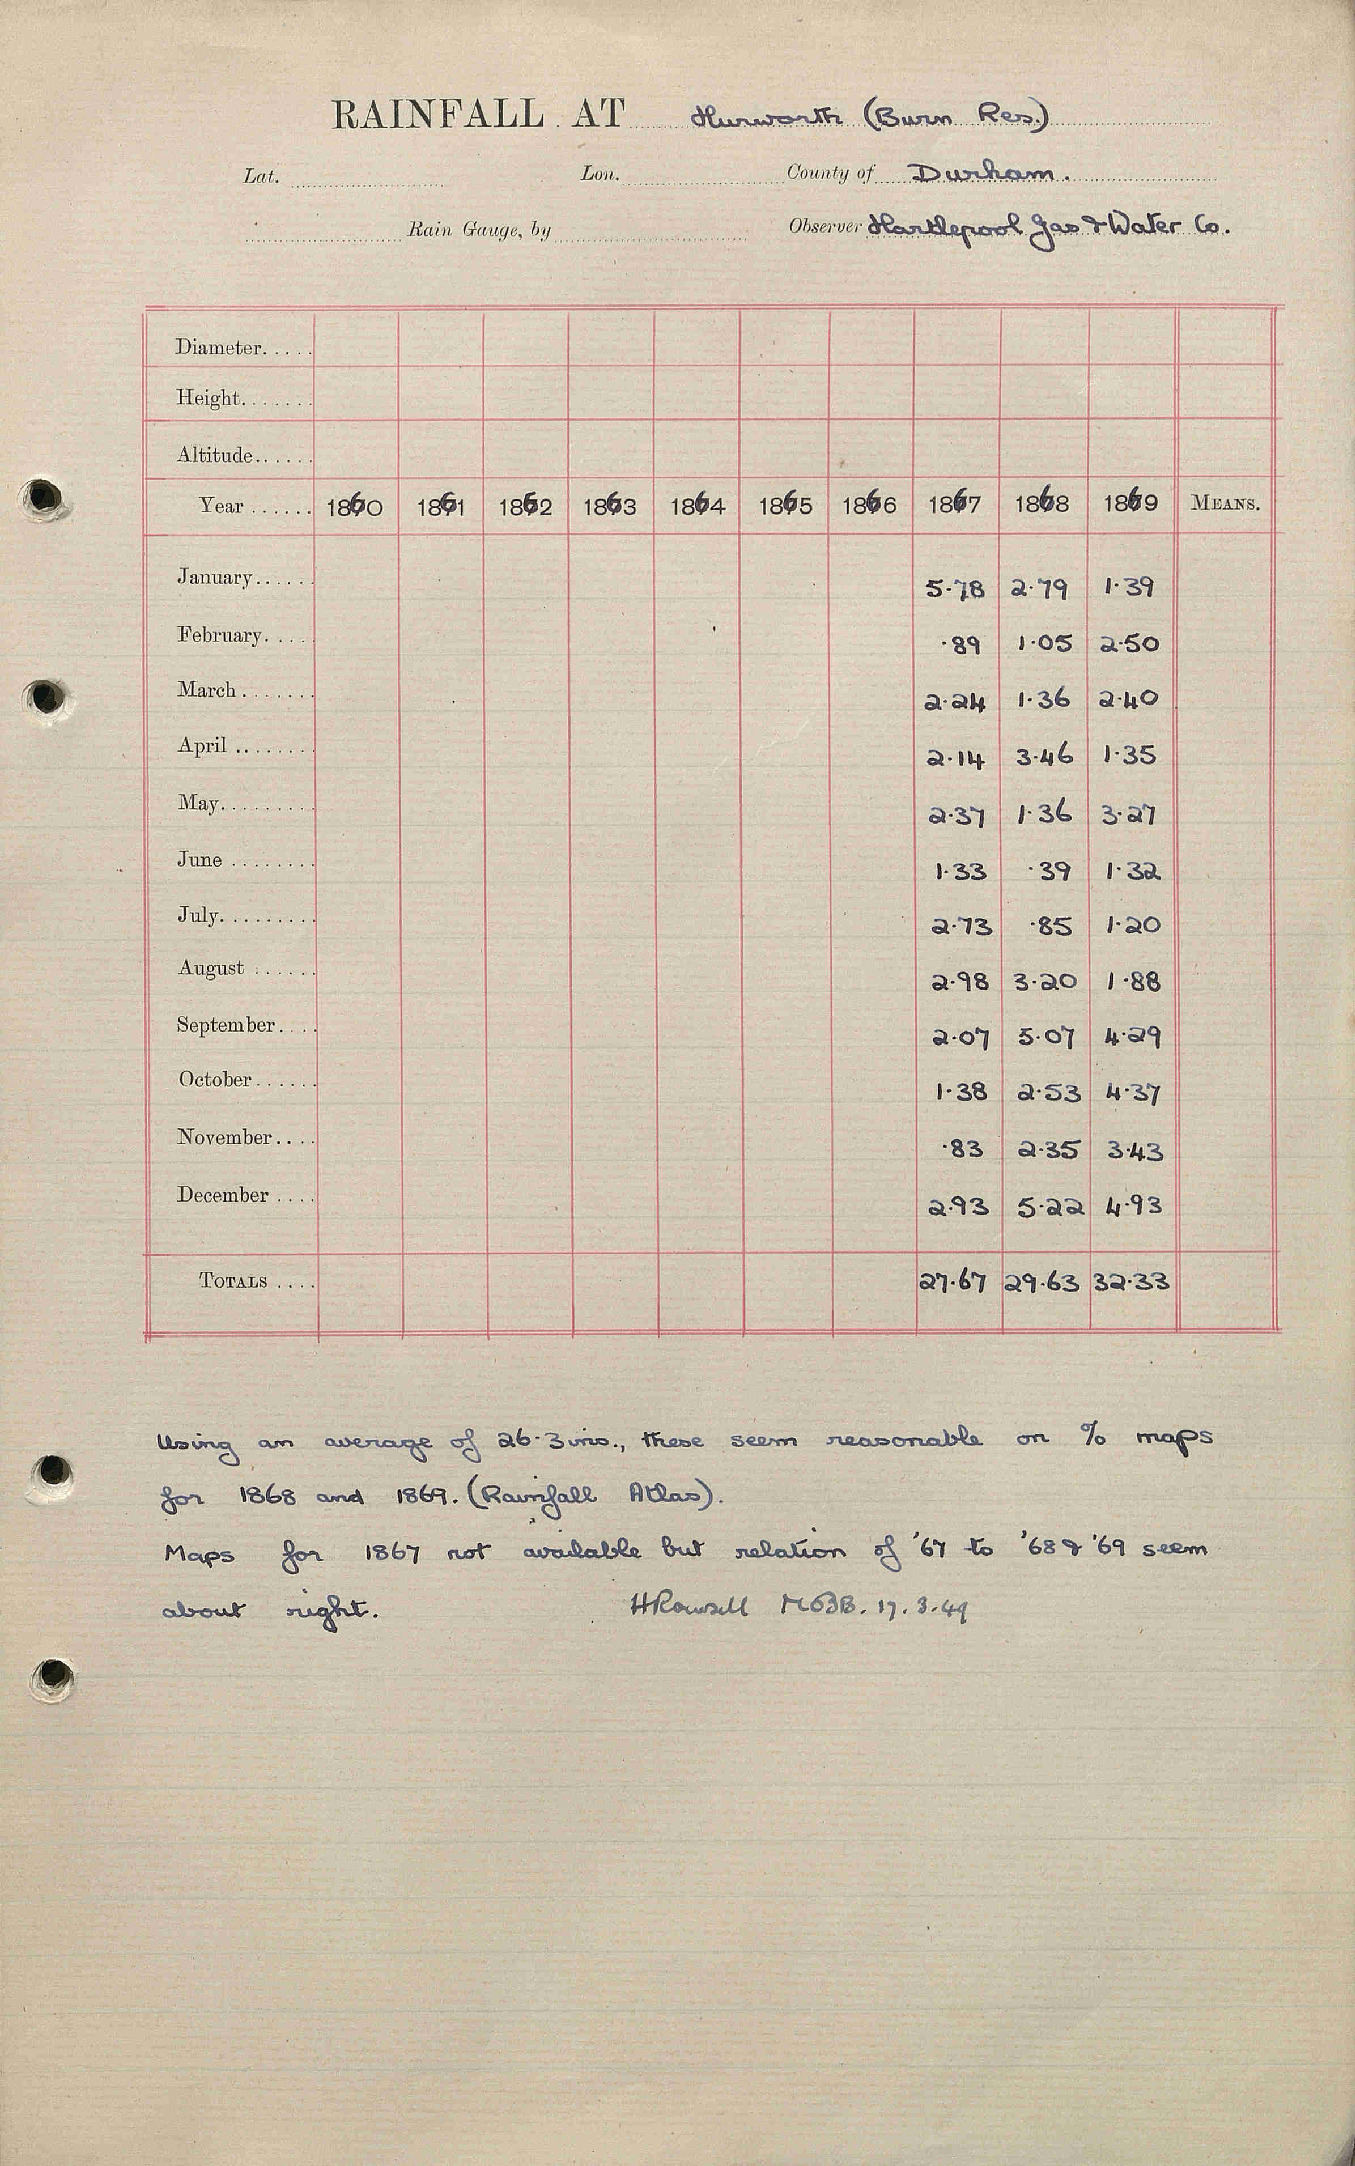 RAINFALL AT Hurworth (Burn Res.)
Lat. Lon. County of Durham.
Rain Gauge, by Observer Hartlepool Gas & Water Co.
Diameter
Height
Altitude
Year 1860 1861 1862 1863 1864 1865 1866 1867 1868 1869 MEANS.
January 5.78 2.79 1.39
February .89 1.05 2.50
March 2.24 1.36 2.40
April 2.14 3.46 1.35
May 2.37 1.36 3.27
June 1.33 .39 1.32
July 2.73 .85 1.20
August 2.98 3.20 1.88
September 2.07 5.07 4.29
October 1.38 2.53 4.37
November .83 2.35 3.43
December 2.93 5.22 4.93
TOTALS 27.67 29.63 32.33
Using an average of 26.3 ins., these seem reasonable on % maps
for 1868 and 1869. (Rainfall Atlas).
Maps for 1867 not available but relation of '67 to '68 & '69 seem
about right. HRowsell MOBB. 17.3.49